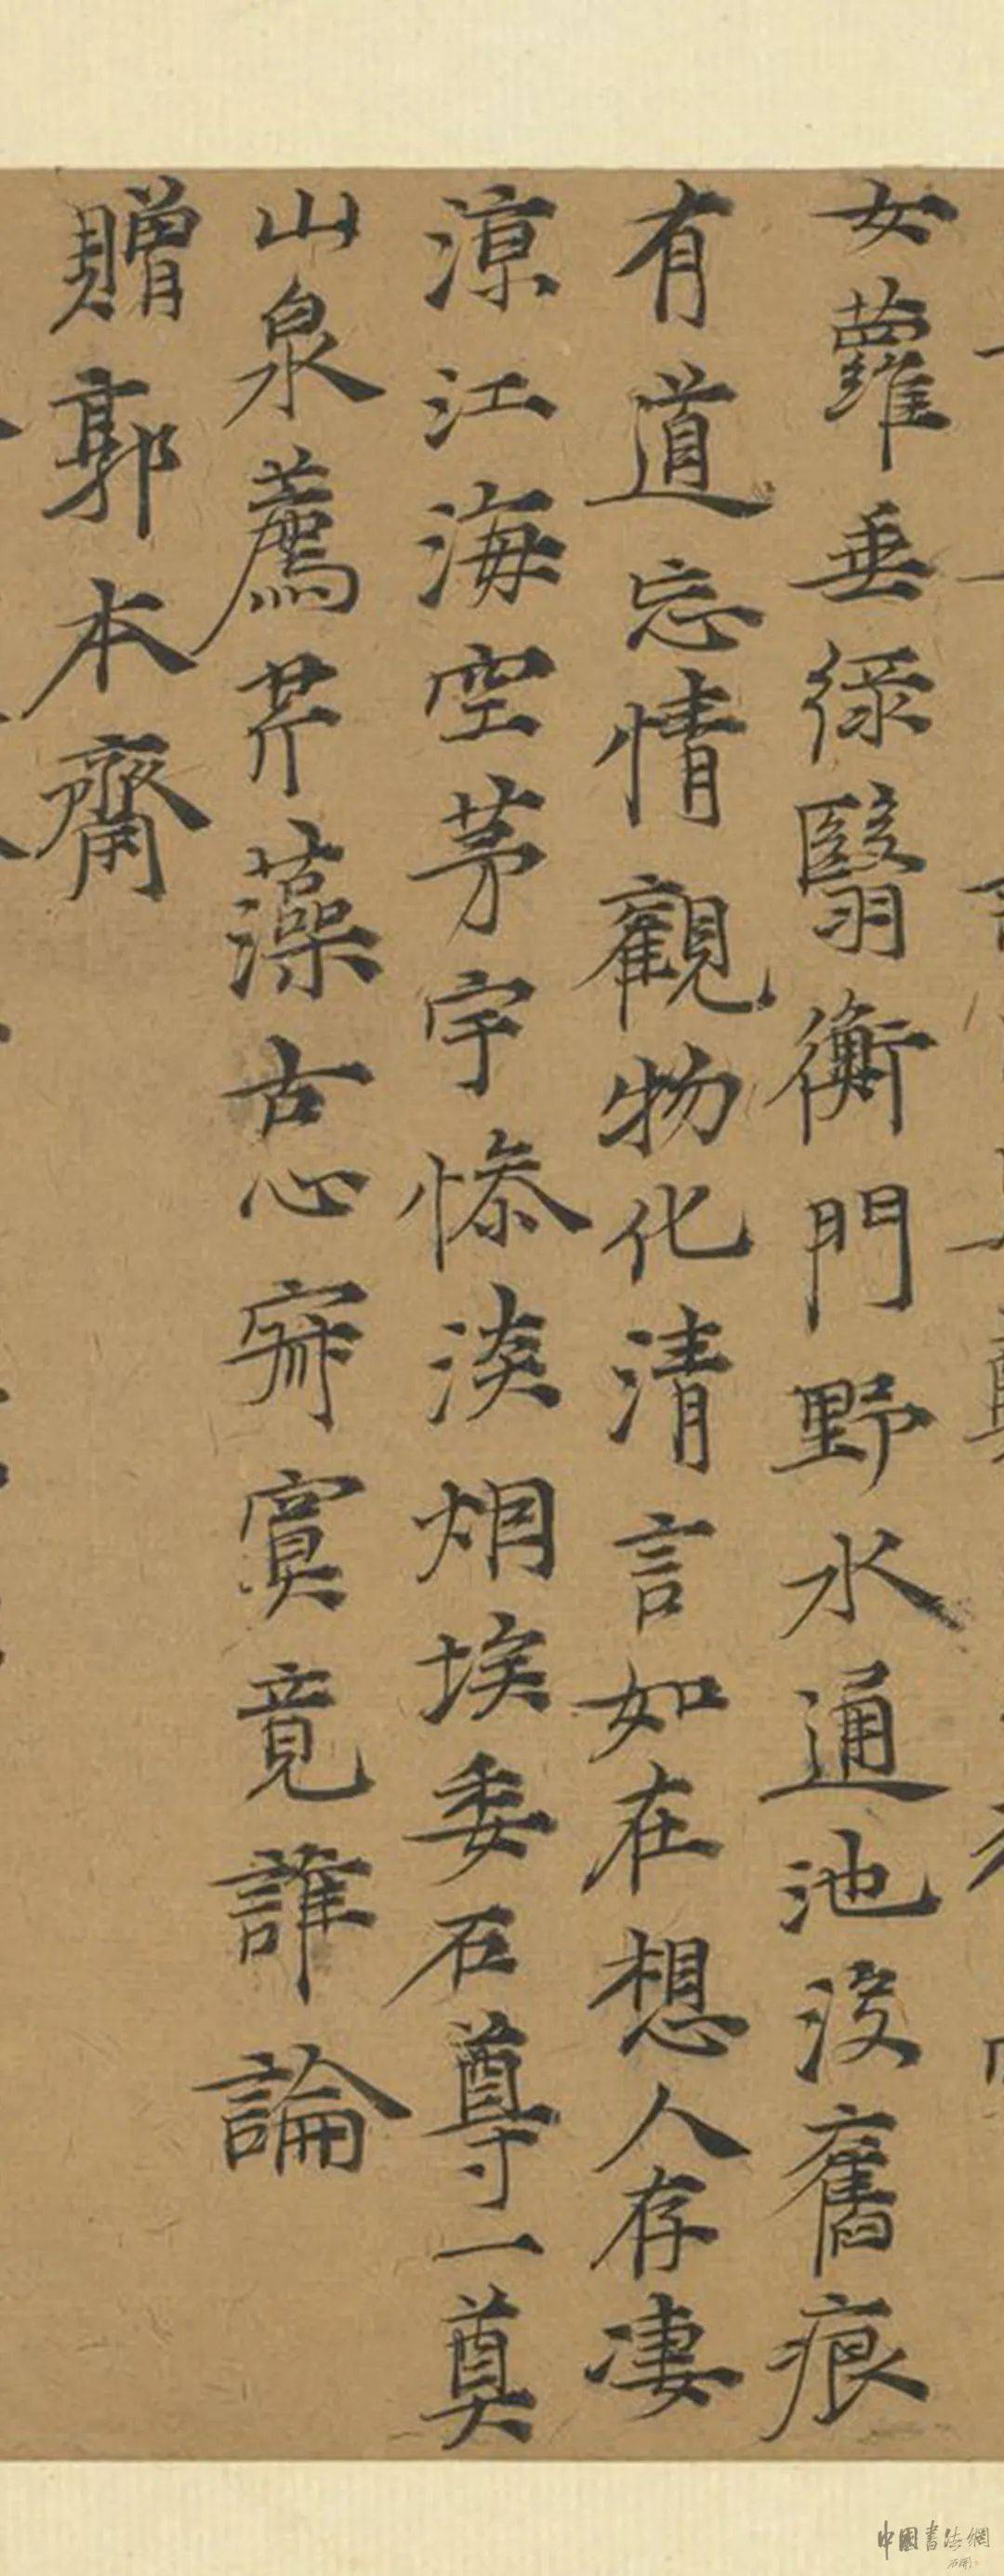 女蘿垂緑翳衡門野水通池没舊痕
有道忘情觀物化清言如在想人存凄
涼江海空茅宇惨淡烟埃委石尊一奠
山泉薦芹藻古心寂寞竟誰論
贈郭本齋
中國書法網